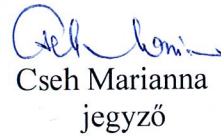 Cseh Marianna
jegyző